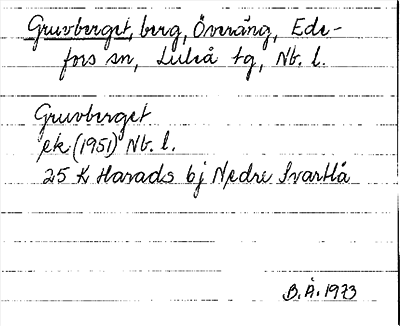 Gruvberget, berg, Överäng, Ede-
fors sn, Luleå tg, Nb. l.
Gruvberget
ek (1951) Nb. l.
25 K Harads bj Nedre Svartlå
B. Å. 1973